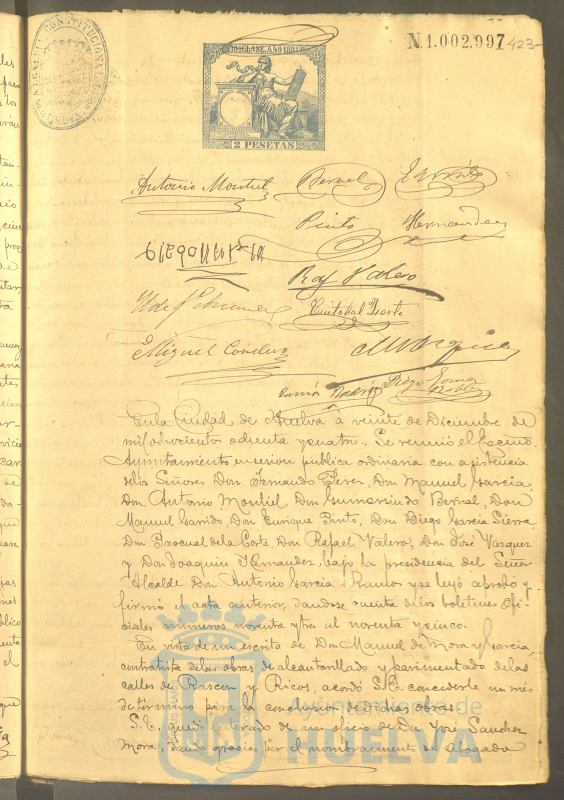 ALCALDIA CONSTITUCIONAL
10ª CLASE. AÑO DE 1884
2 PESETAS
N.1.002.997
423-
Antonio Montiel Bernal Garrido
Pinto Hernandez
Raf Valero
Miguel Cordero
Vazquez
Diego Gomez
En la Ciudad de Huelva á veinte de Diciembre de
mil ochociento ochenta y cuatro. Se reunió el Excmo.
Ayuntamiento en sesion publica ordinaria con asistencia
de los Señores Don Fernando Perez, Don Manuel Garcia,
Don Antonio Montiel, Don Gumersindo Bernal, Don
Manuel Garrido, Don Enrique Pinto, Don Diego Garcia Sierra,
Don Pascual de la Corte, Don Rafael Valero, Don José Vazquez
y Don Joaquin Hernandez, bajo la presidencia del Señor
Alcalde Don Antonio Garcia Ramos y se leyó aprobó y
firmó el acta anterior, dandose cuenta de los boletines Ofi-
ciales numeros noventa y tres al noventa y cinco.
En vista de un escrito de Don Manuel de Mora y Garcia,
contratista de las obras de alcantarillado y pavimentado de las
calles de Rascon y Ricos, acordó S.E. concederle un mes
de término para la conclusion de dichas obras.
S.E. quedó enterado de un oficio de Don José Sanchez
Mora, dando gracias por el nombramiento de Abogado
Ayuntamiento de
HUELVA